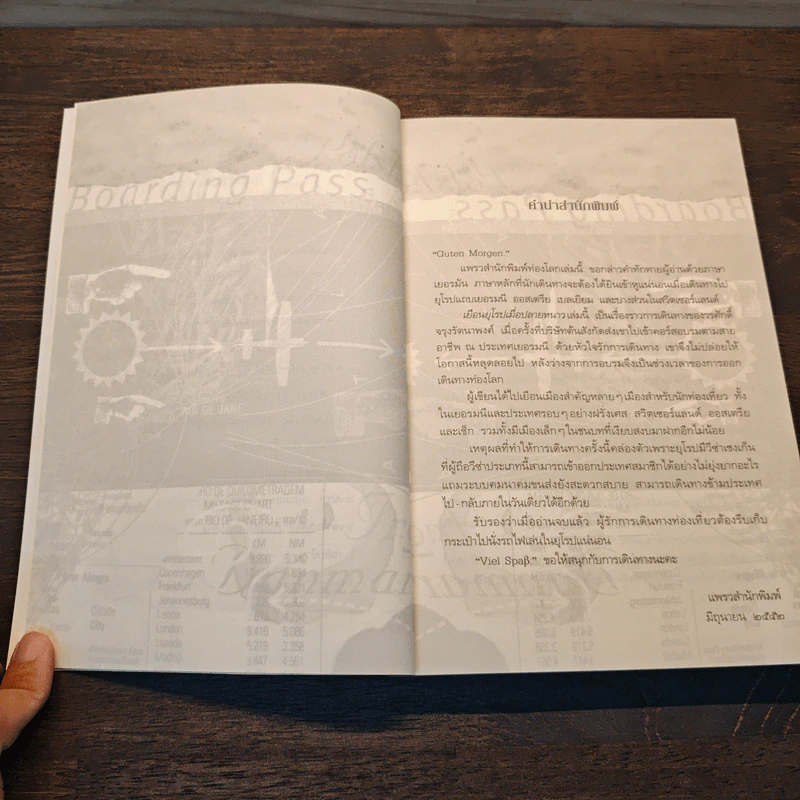 Boarding Pass
RIO DE JAN
RIO DE QUILOMETRAGEM
RIO DE JANEIRO
KM NM
Amsterdam
Copenhagen
Frankfurt
Johannesburg
Lisboa
London
Luanda
Madrid
Cidade
City
คำนำสำนักพิมพ์
"Guten Morgen."
แพรวสำนักพิมพ์ท่องโลกเล่มนี้ ขอกล่าวคำทักทายผู้อ่านด้วยภาษา
เยอรมัน ภาษาหลักที่นักเดินทางจะต้องได้ยินเข้าหูแน่นอนเมื่อเดินทางไป
ยุโรปแถบเยอรมนี ออสเตรีย เบลเยียม และบางส่วนในสวิตเซอร์แลนด์
เยือนยุโรปเมื่อปลายหนาวเล่มนี้ เป็นเรื่องราวการเดินทางของวรศักดิ์
จรุงรัตนาพงศ์ เมื่อครั้งที่บริษัทต้นสังกัดส่งเขาไปเข้าคอร์สอบรมตามสาย
อาชีพ ณ ประเทศเยอรมนี ด้วยหัวใจรักการเดินทาง เขาจึงไม่ปล่อยให้
โอกาสนี้หลุดลอยไป หลังว่างจากการอบรมจึงเป็นช่วงเวลาของการออก
เดินทางท่องโลก
ผู้เขียนได้ไปเยือนเมืองสำคัญหลายๆ เมืองสำหรับนักท่องเที่ยว ทั้ง
ในเยอรมนีและประเทศรอบๆ อย่างฝรั่งเศส สวิตเซอร์แลนด์ ออสเตรีย
และเช็ก รวมทั้งมีเมืองเล็กๆ ในชนบทที่เงียบสงบมาฝากอีกไม่น้อย
เหตุผลที่ทำให้การเดินทางครั้งนี้คล่องตัวเพราะยุโรปมีวีซ่าเชงเก็น
ที่ผู้ถือวีซ่าประเภทนี้สามารถเข้าออกประเทศสมาชิกได้อย่างไม่ยุ่งยากอะไร
แถมระบบคมนาคมขนส่งยังสะดวกสบาย สามารถเดินทางข้ามประเทศ
ไป-กลับภายในวันเดียวได้อีกด้วย
รับรองว่าเมื่ออ่านจบแล้ว ผู้รักการเดินทางท่องเที่ยวต้องรีบเก็บ
กระเป๋าไปนั่งรถไฟเล่นในยุโรปแน่นอน
"Viel Spaß." ขอให้สนุกกับการเดินทางนะคะ
แพรวสำนักพิมพ์
มิถุนายน ๒๕๕๒